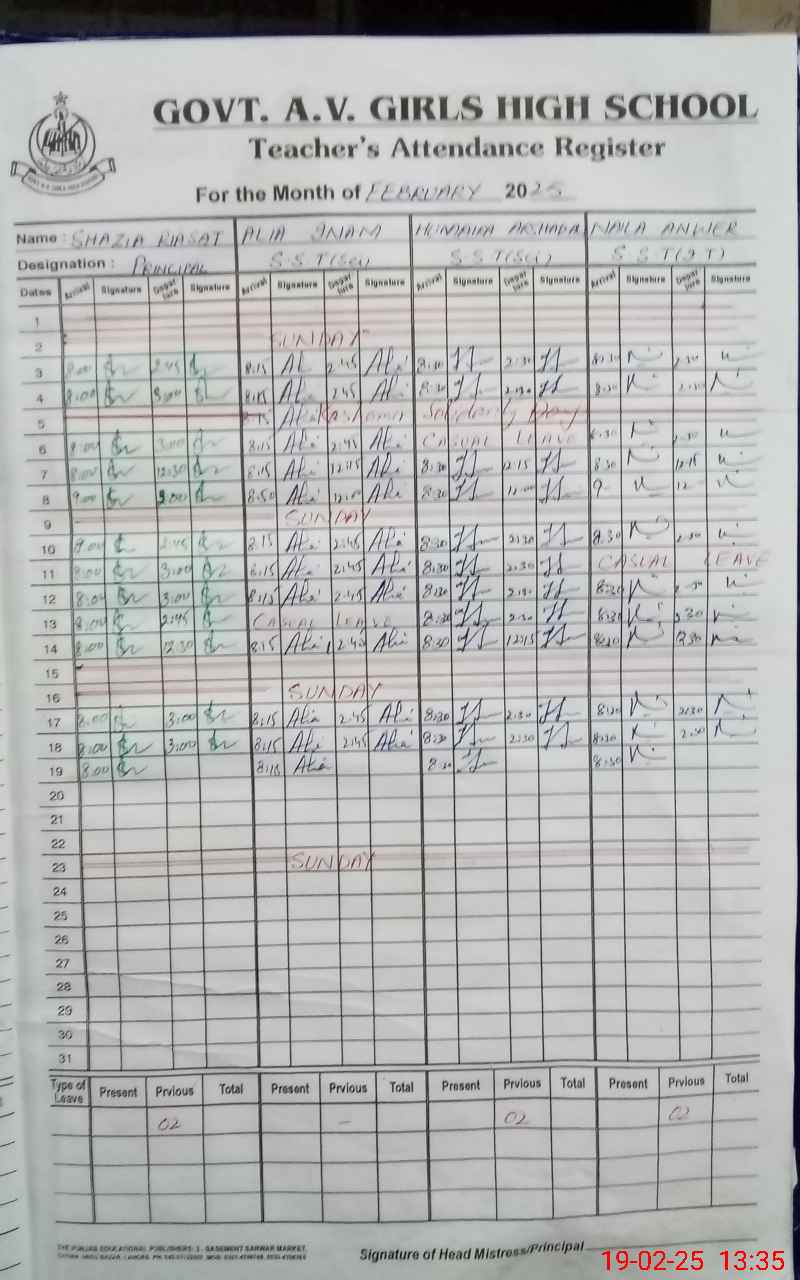 GOVT. A.V. GIRLS HIGH SCHOOL
Teacher's Attendance Register
For the Month of FEBRUARY 2025
Name : SHAZIA RIASAT ALIA INAM HUMAIRA ARSHAD NAILA ANWER
Designation : PRINCIPAL S.S.T(Sci) S.S.T(Sci) S.S.T(IT)
Dates Arrival Signature Departure Signature Arrival Signature Departure Signature Arrival Signature Departure Signature Arrival Signature Departure Signature
1
2 SUNDAY
3 8:00 2:45 8:15 2:45 8:30 2:30 8:30 2:30
4 8:00 3:00 8:15 2:45 8:30 2:30 8:30 2:30
5 8:15 Alia Kashmir Solidarity Day
6 8:00 3:00 8:15 Alia 2:45 Alia CASUAL LEAVE 8:30
7 8:00 12:30 8:15 Alia 12:15 Alia 8:30 12:15 8:30 12:15
8 9:00 8:50 Alia 12:00 Alia 8:30 12:00 9- 12-
9 SUNDAY
10 8:00 2:45 8:15 Alia 2:45 Alia 8:30 2:30 8:30 2:30
11 8:00 3:00 8:15 Alia 2:45 Alia 8:30 2:30 CASUAL LEAVE
12 8:00 3:00 8:15 Alia 2:45 Alia 8:30 2:30 8:30
13 8:00 2:45 CASUAL LEAVE 8:30 2:30 8:30 2:30
14 8:00 12:30 8:15 Alia 8:30 12:15 8:30
15
16 SUNDAY
17 8:00 3:00 8:15 Alia 2:45 Alia 8:30 2:30 8:30 2:30
18 8:00 3:00 8:15 Alia 2:45 Alia 8:30 2:30 8:30 2:30
19 8:00 8:15 Alia 8:30 8:30
20
21
22
23 SUNDAY
24
25
26
27
28
29
30
31
Type of Leave Present Prvious Total Present Prvious Total Present Prvious Total Present Prvious Total
02 - 02 02
THE PUNJAB EDUCATIONAL PUBLISHERS: 1 - BASEMENT SARWAR MARKET,
Signature of Head Mistress/Principal
19-02-25 13:35